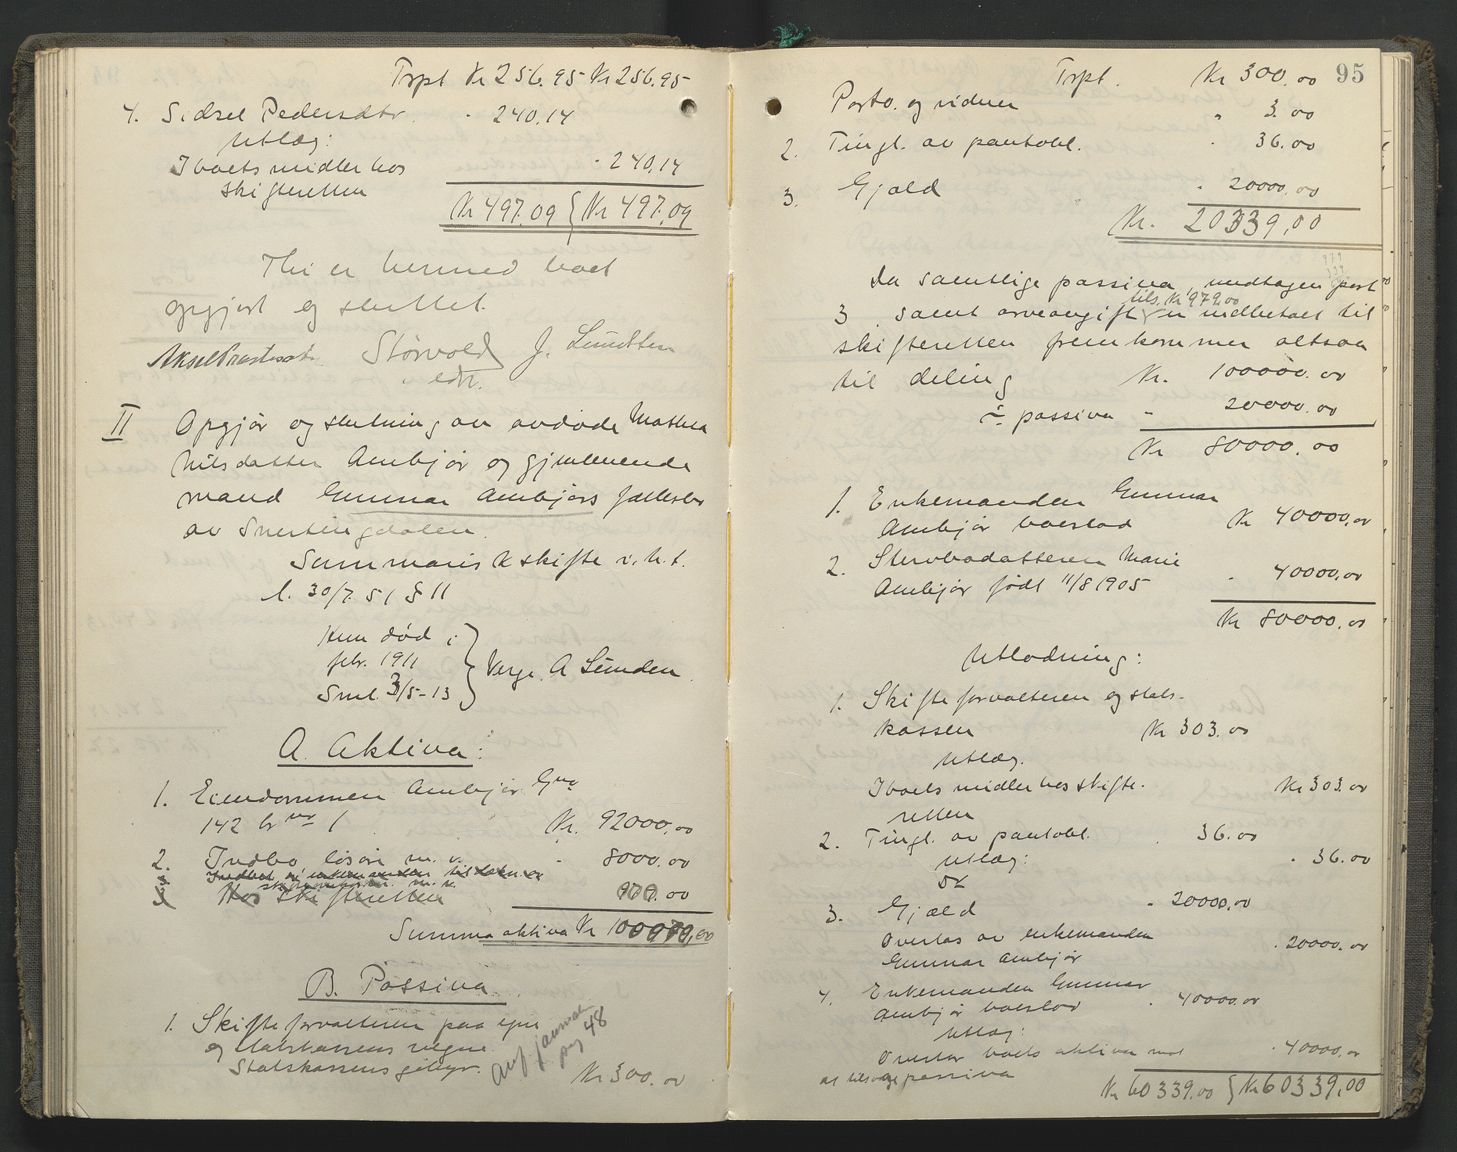 Trpt Kr 256.95 Kr 256.95
4. Sidsel Pedersdtr. - 240.14
Utlæg:
I boets midler hos - 240,14
skifteretten
Kr 497.09 { Kr 497.09
Thi er hermed boet
opgjort og sluttet.
Aksel Størvold J. Lundsten
edr.
II Opgjør og slutning av avdøde Mathea
Nilsdatter Ambjør og gjenlevende
mand Gunnar Ambjørs fællesbo
av Snertingdalen.
Summarisk skifte i. h. t.
l. 30/7 51 § 11
Hun død i
febr. 1911 } Verge. A Lunden.
Sml. 3/5-13
A. Aktiva:
1. Eiendommen Ambjør Gno
142 br nr 1 Kr. 92000,00
2. Indbo løsøre m. v. - 8000,00
Hos Skifteretten 979.00
Summa aktiva Kr 100979,00
B. Passiva.
1. Skifteforvalteren paa egne
og statskassens vegne.
Statskassens gebyr. Kr 300.00
Anf. journal
pag 48
95
Trpt. Kr 300.00
Porto og vidner " 3.00
2. Tingl. av pantobl. - 36.00
3. Gjæld - 20000.00
Kr. 20339,00
Da samtlige passiva, undtagen post
tils. Kr 979.00
3 samt arveavgift er indbetalt til
skifteretten fremkommer altsaa
til deling Kr. 100000.00
÷ passiva - 20000.00
Kr 80000.00
1. Enkemanden Gunnar
Ambjør boeslod Kr 40000,00
2. Stervbodatteren Marie
Ambjør født 11/8 1905 - 40000,00
Kr 80000,00
Utlodning:
1. Skifteforvalteren og stats-
kassen Kr 303.00
Utlæg.
I boets midler hos skifte- Kr 303.00
retten
2. Tingl. av pantobl. . 36.00
Utlæg: . 36.00
3. Gjæld - 20000,00
Overtas av enkemanden . 20000.00
Gunnar Ambjør
4. Enkemanden Gunnar
Ambjør boeslod . 40000.00
Utlæg:
Overtar boets aktiva mot - 40000,00
at tilsvare passiva
Kr 60339.00 { Kr 60339,00